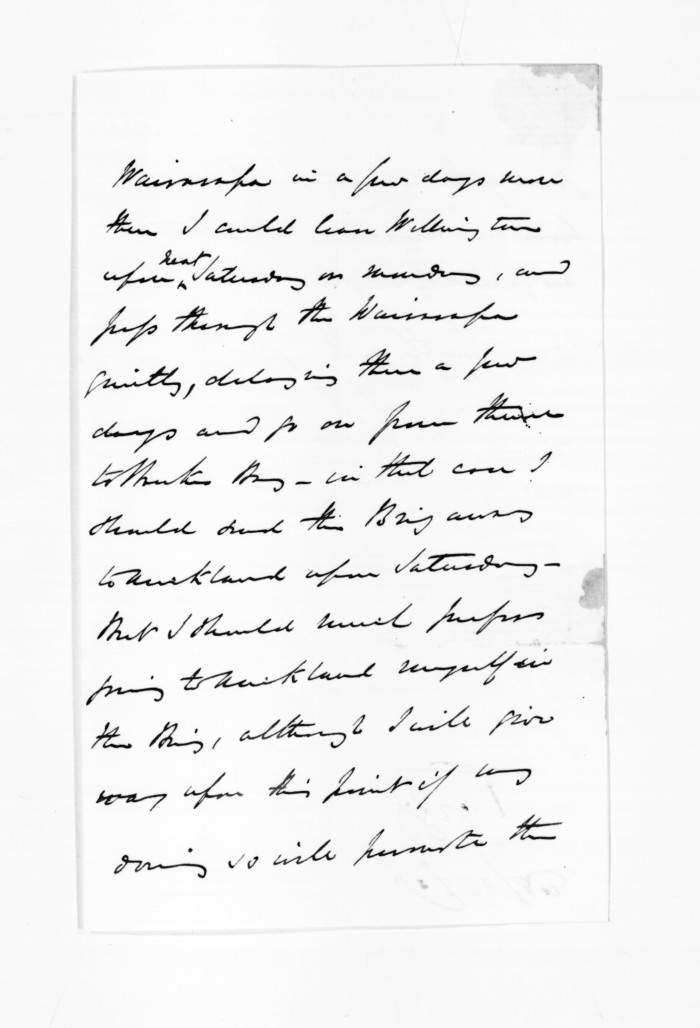 Wairarapa in a few days more
then I could leave Wellington
upon next Saturday or monday, and
pass through the Wairarapa
quietly, delaying there a few
days and go on from there
to Hawkes Bay – in that case I
should send the Brig away
to Auckland upon Saturday –
But I should much prefer
going to Auckland myself in
the Brig, although I will give
way upon this point if my
doing so will promote the